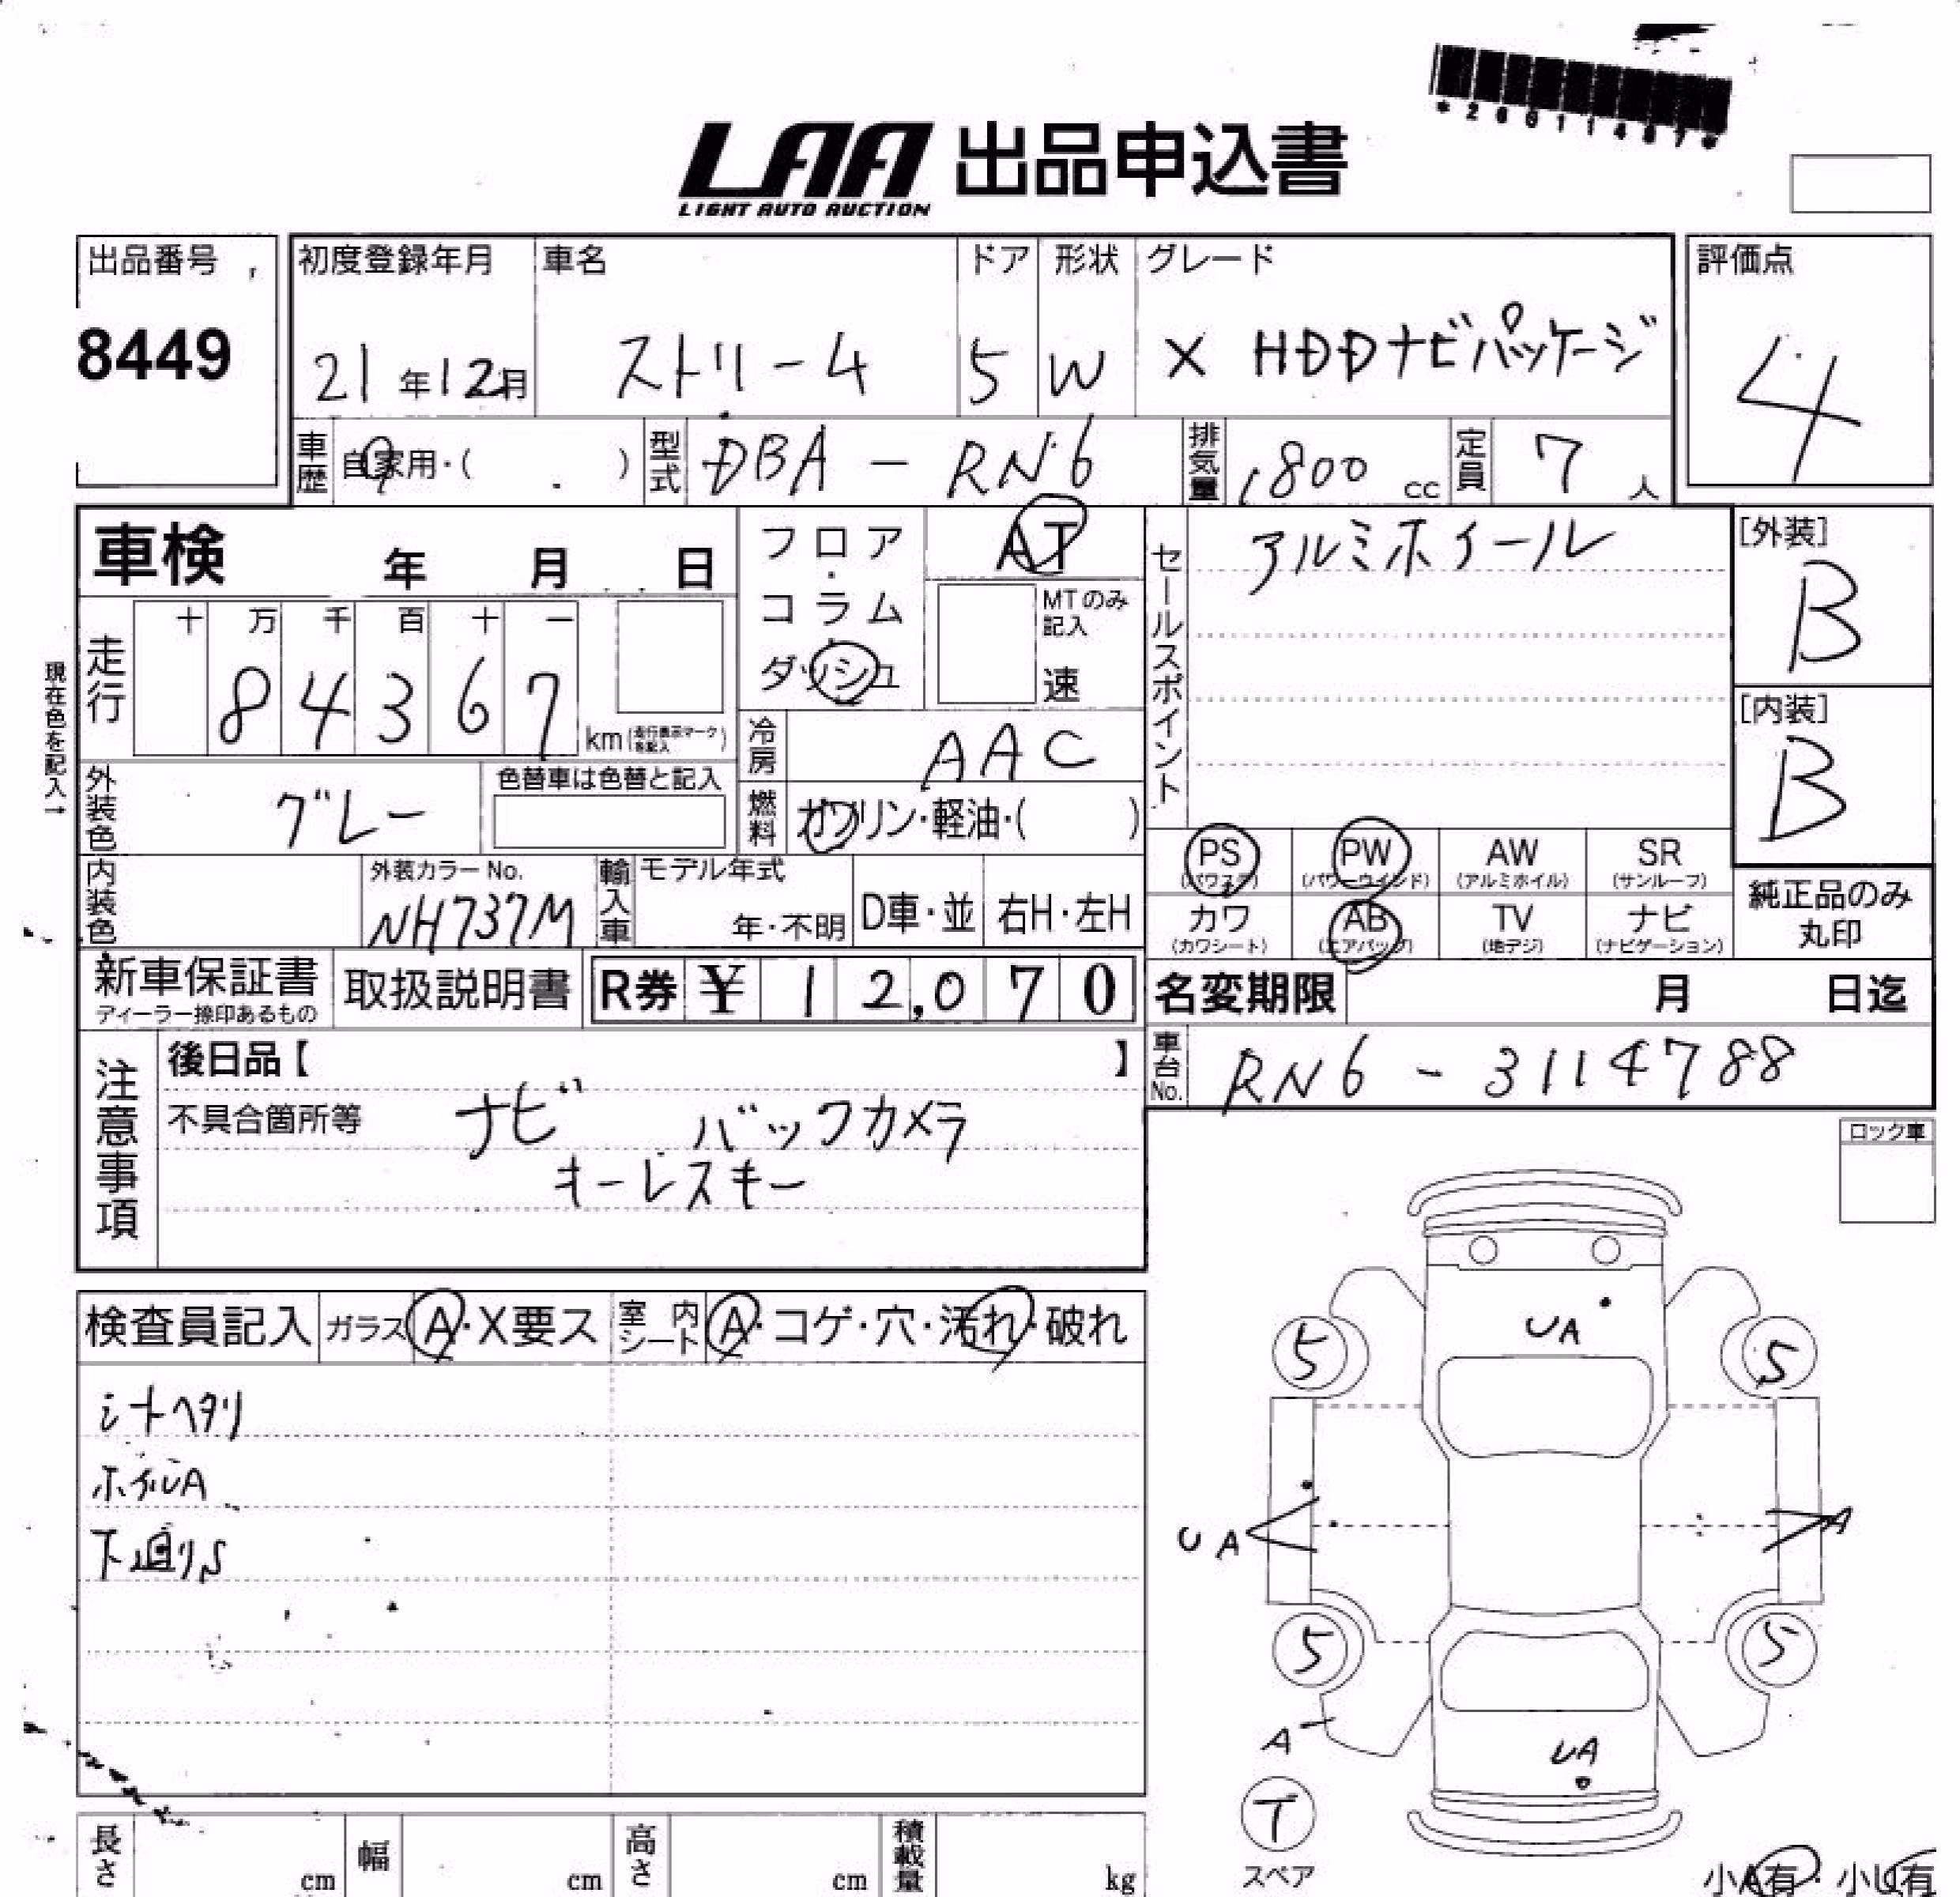 *26011487*
LAA 出品申込書
LIGHT AUTO AUCTION
出品番号
8449
初度登録年月
21年12月
車名
ストリーム
ドア
5
形状
W
グレード
X HDDナビパッケージ
評価点
4
車歴
自家用・( )
型式
DBA-RN6
排気量
1800 cc
定員
7 人
車検 年 月 日
フロア・コラム・ダッシュ
AT
MTのみ記入
速
セールスポイント
アルミホイール
[外装]
B
[内装]
B
現在色を記入→
走行
十 万 千 百 十 一
8 4 3 6 7
km(走行表示マークを記入)
冷房
AAC
外装色
グレー
色替車は色替と記入
燃料
ガソリン・軽油・( )
PS
(パワステ)
PW
(パワーウインド)
AW
(アルミホイル)
SR
(サンルーフ)
内装色
外装カラーNo.
NH737M
輸入車
モデル年式
年・不明
D車・並
右H・左H
カワ
(カワシート)
AB
(エアバッグ)
TV
(地デジ)
ナビ
(ナビゲーション)
純正品のみ
丸印
新車保証書
ディーラー捺印あるもの
取扱説明書
R券 ¥ 12,070
名変期限 月 日迄
車台No.
RN6-3114788
注意事項
後日品【 】
不具合箇所等
ナビ バックカメラ
キーレスキー
ロック車
検査員記入
ガラス A・X要ス
室内シート A・コゲ・穴・汚れ・破れ
シートヘタリ
ホイルA
下廻りS
UA
5
5
UA
A
5
5
A
UA
T
スペア
小A有・小U有
長さ cm
幅 cm
高さ cm
積載量 kg